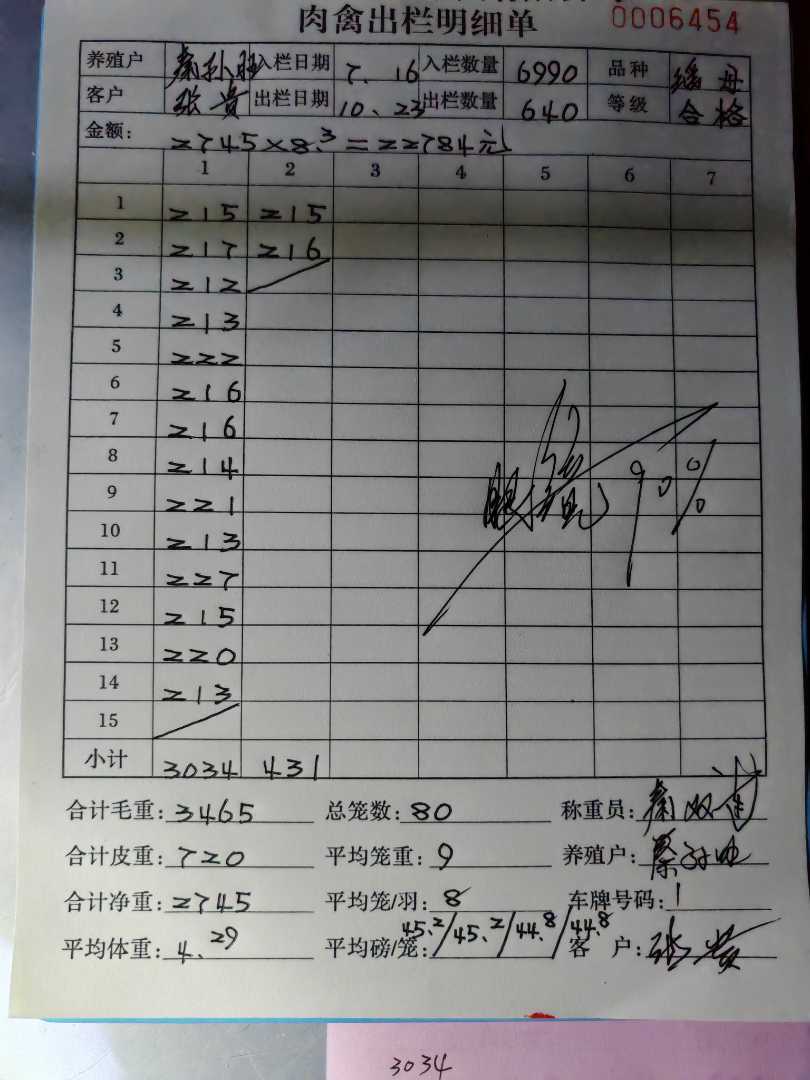 肉禽出栏明细单 0006454
养殖户 入栏日期 7、16 入栏数量 6990 品种
客户 张贵 出栏日期 10、23 出栏数量 640 等级 合格
金额: 2745×8.3=22784元
1 2 3 4 5 6 7
1 215 215
2 217 216
3 212
4 213
5 222
6 216
7 216
8 214
9 221
10 213
11 227
12 215
13 220
14 213
15
小计 3034 431
90%
合计毛重: 3465 总笼数: 80 称重员:
合计皮重: 720 平均笼重: 9 养殖户:
合计净重: 2745 平均笼/羽: 8 车牌号码: 1
平均体重: 4.29 平均磅/笼: 45.2/45.2/44.8/44.8 客 户: 张贵
3034